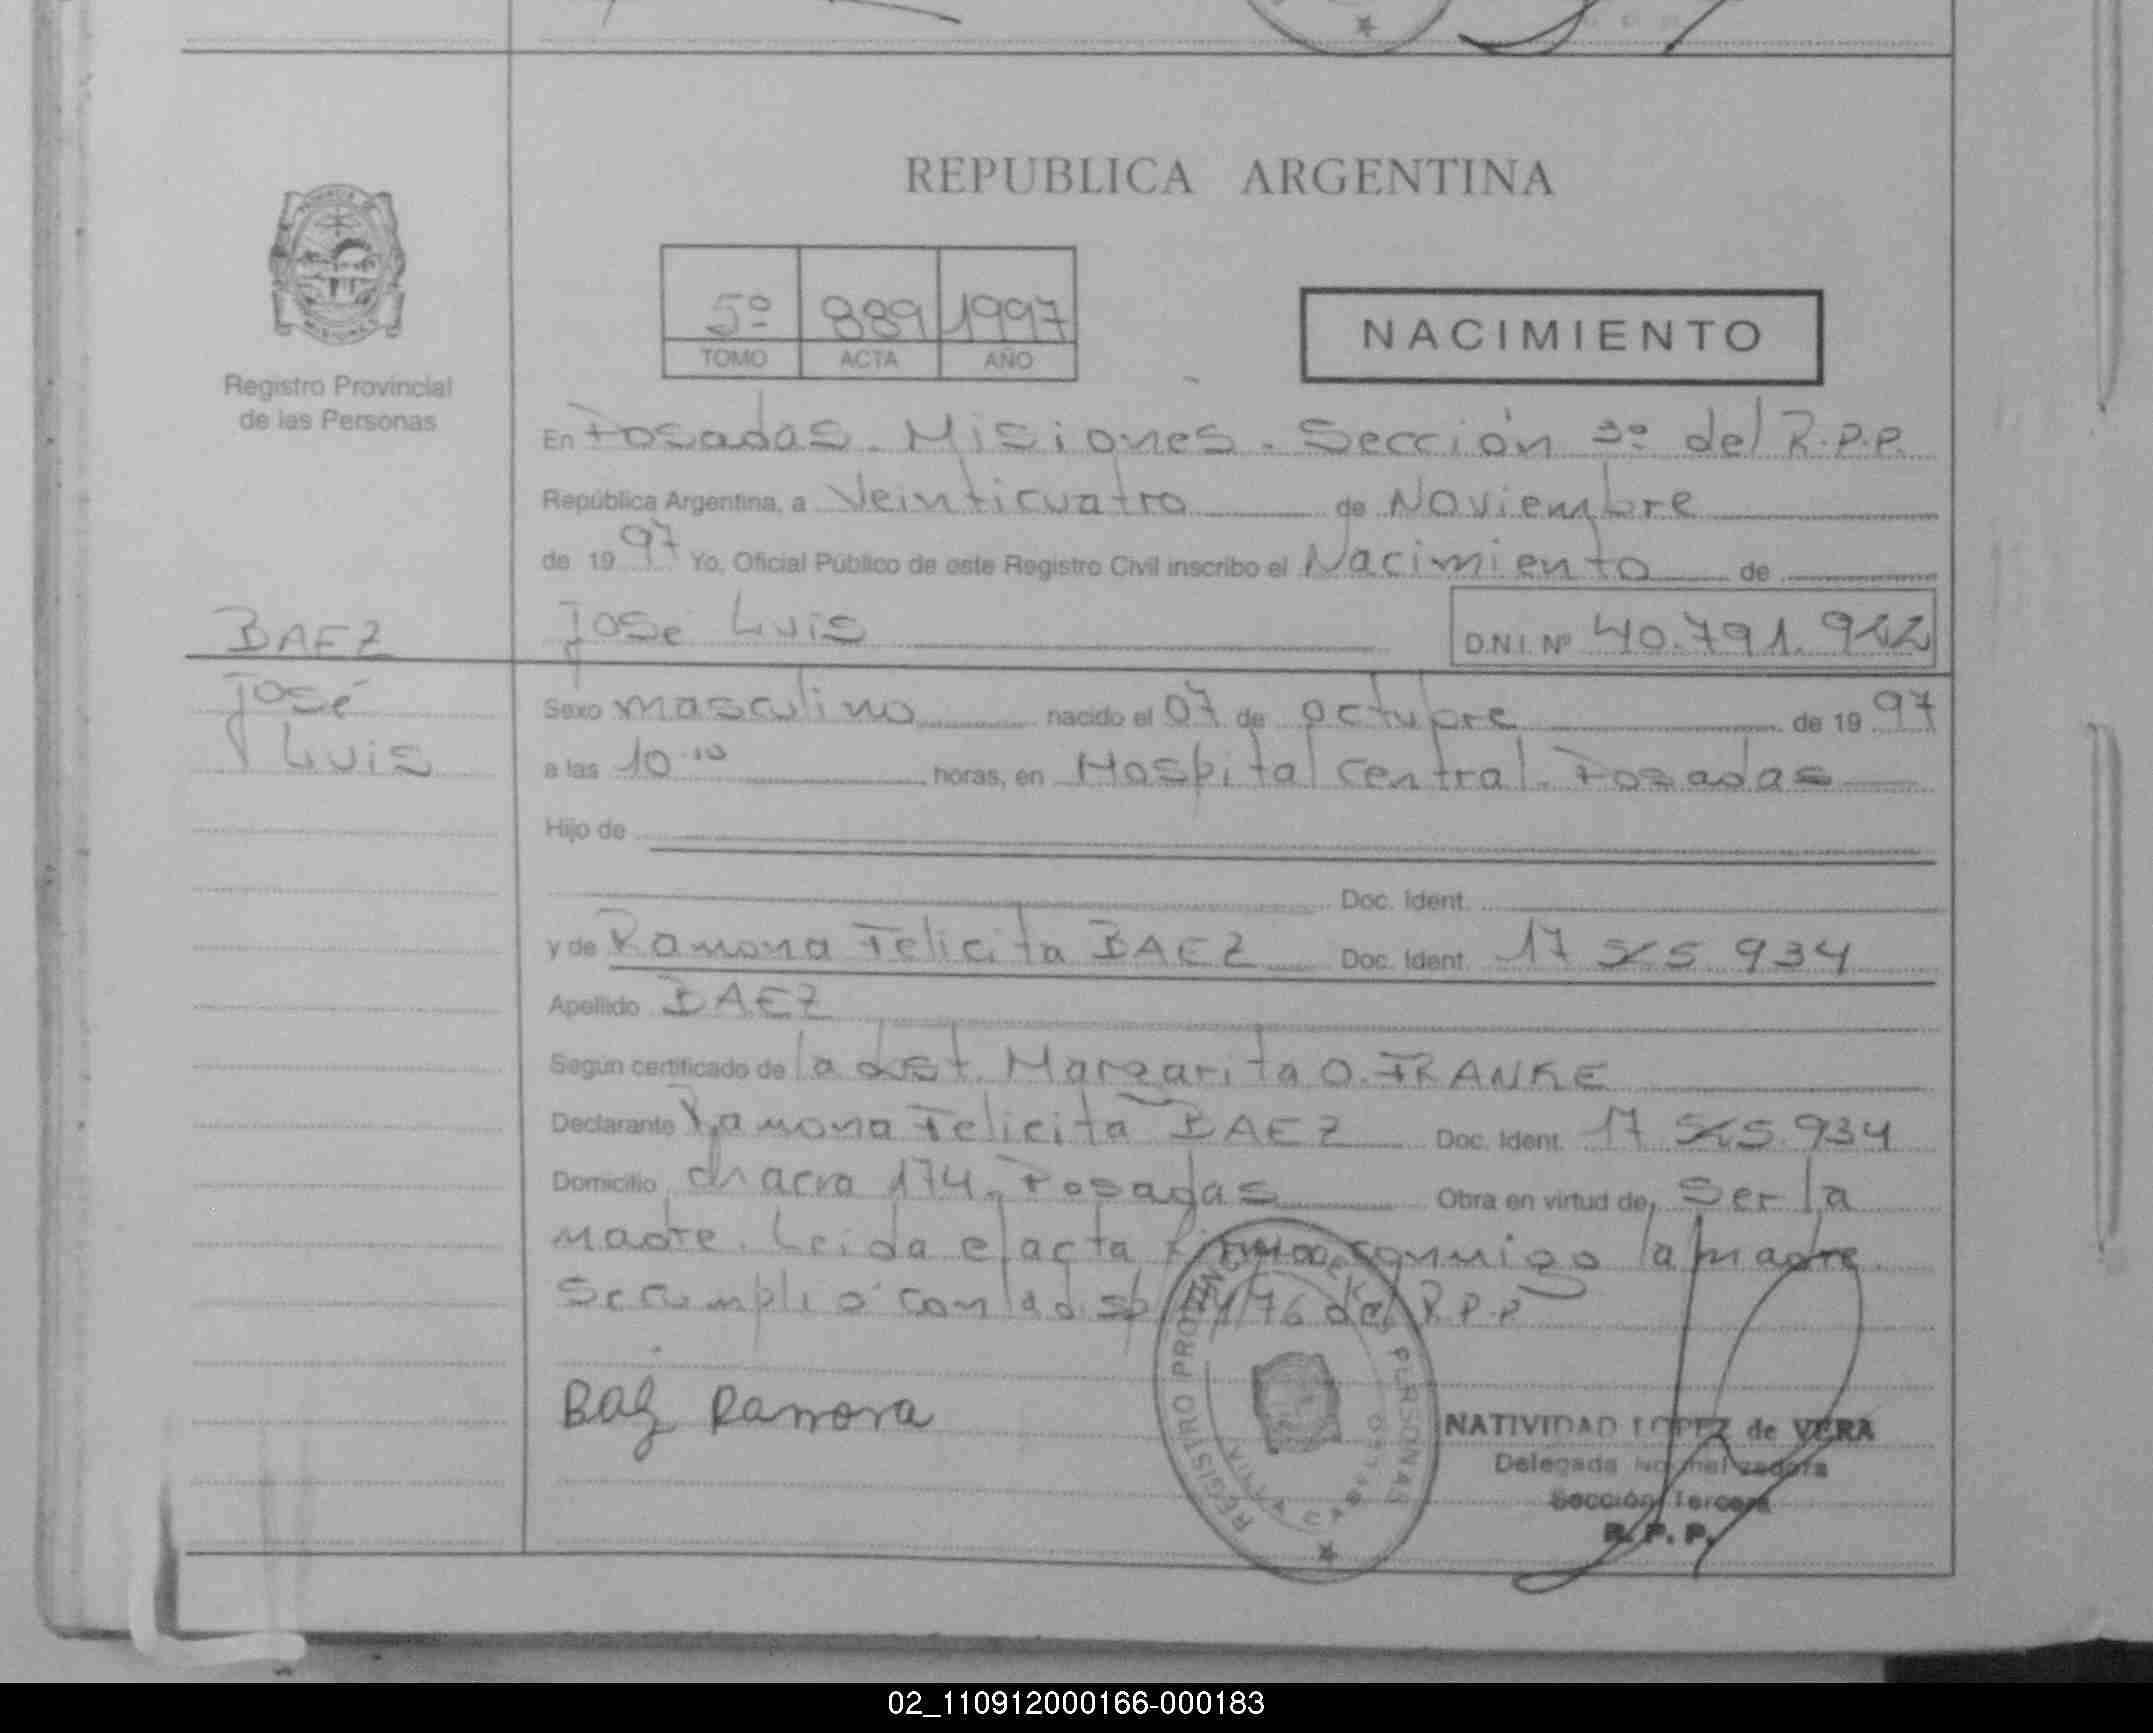 REPUBLICA ARGENTINA
5º 889 1997
TOMO ACTA AÑO
NACIMIENTO
Registro Provincial
de las Personas
En Posadas - Misiones - Sección 3º del R.P.P.
República Argentina, a Veinticuatro de Noviembre
de 1997 Yo, Oficial Público de este Registro Civil inscribo el Nacimiento de
José Luis D.N.I. Nº 40.791.942
BAEZ
José
Luis
Sexo masculino nacido el 07 de octubre de 1997
a las 10.10 horas, en Hospital Central - Posadas
Hijo de
Doc. Ident.
y de Ramona Felicita BAEZ Doc. Ident. 17 934
Apellido BAEZ
Según certificado de la obst. Margarita O. FRANKE
Declarante Ramona Felicita BAEZ Doc. Ident. 17 934
Domicilio chacra 174 - Posadas Obra en virtud de ser la
madre. Leida el acta firma conmigo la madre
Se cumplió con la disp. 1/76 del R.P.P
Baez Ramona
REGISTRO PROVINCIAL DE LAS PERSONAS
NATIVIDAD LOPEZ de VERA
Delegada Normalizadora
Sección Tercera
R. P. P.
02_110912000166-000183